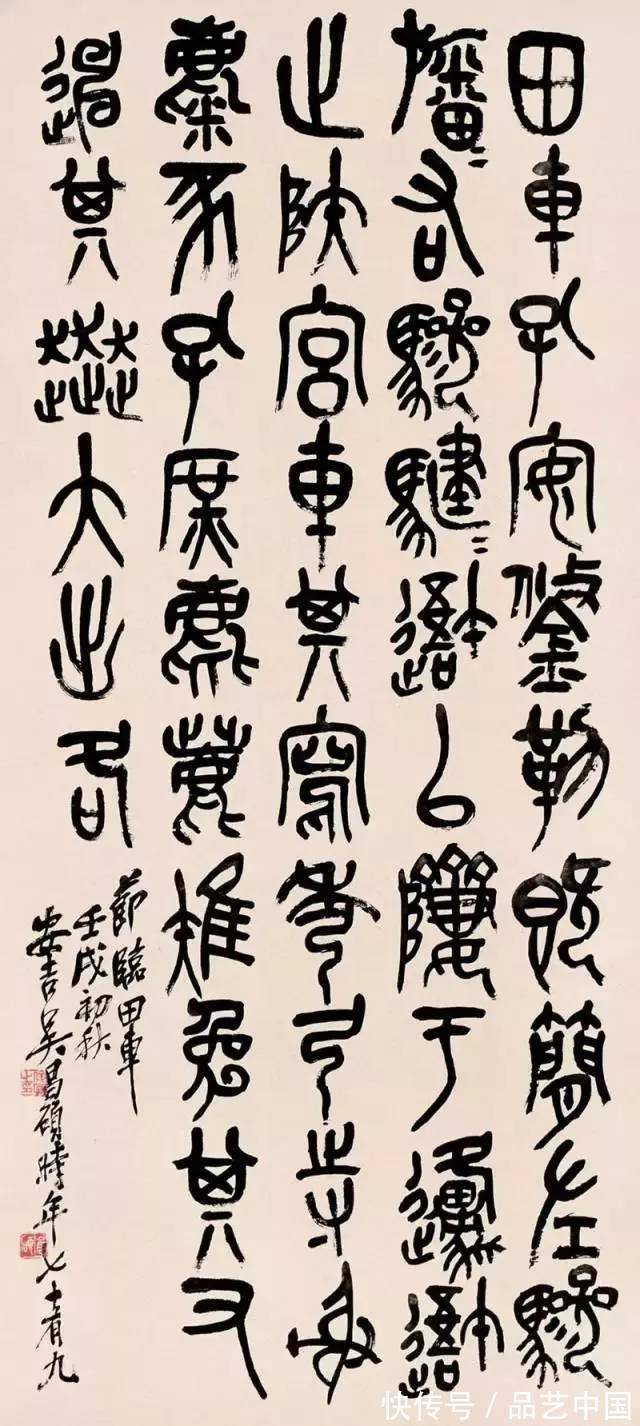 田車孔安鋚勒既簡左驂
旛=右驂騝=吾以隮于邍吾
止陜宮車其寫秀弓寺射
麋豕孔庶麀鹿雉兔其又
其奔大出各
節臨田車
壬戌初秋
安吉吳昌碩時年七十有九
快传号/品艺中国